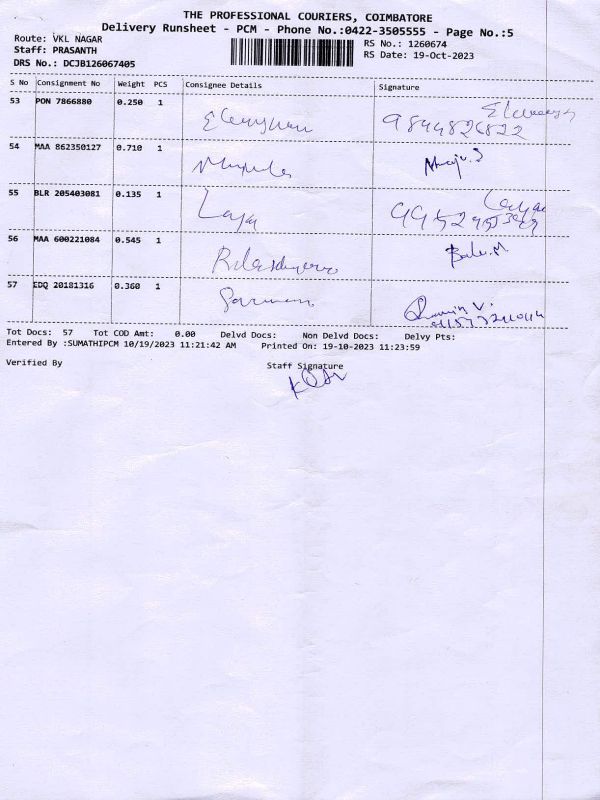 THE PROFESSIONAL COURIERS, COIMBATORE
Delivery Runsheet - PCM - Phone No.:0422-3505555 - Page No.:5
Route: VKL NAGAR
RS No.: 1260674
Staff: PRASANTH
RS Date: 19-Oct-2023
DRS No.: DCJB126067405
S No Consignment No Weight PCS Consignee Details Signature
53 PON 7866880 0.250 1
9844826822
54 MAA 862350127 0.710 1
55 BLR 205403081 0.135 1
56 MAA 600221084 0.545 1
Balu.M
57 EDQ 20181316 0.360 1
Tot Docs: 57 Tot COD Amt: 0.00 Delvd Docs: Non Delvd Docs: Delvy Pts:
Entered By :SUMATHIPCM 10/19/2023 11:21:42 AM Printed On: 19-10-2023 11:23:59
Verified By Staff Signature